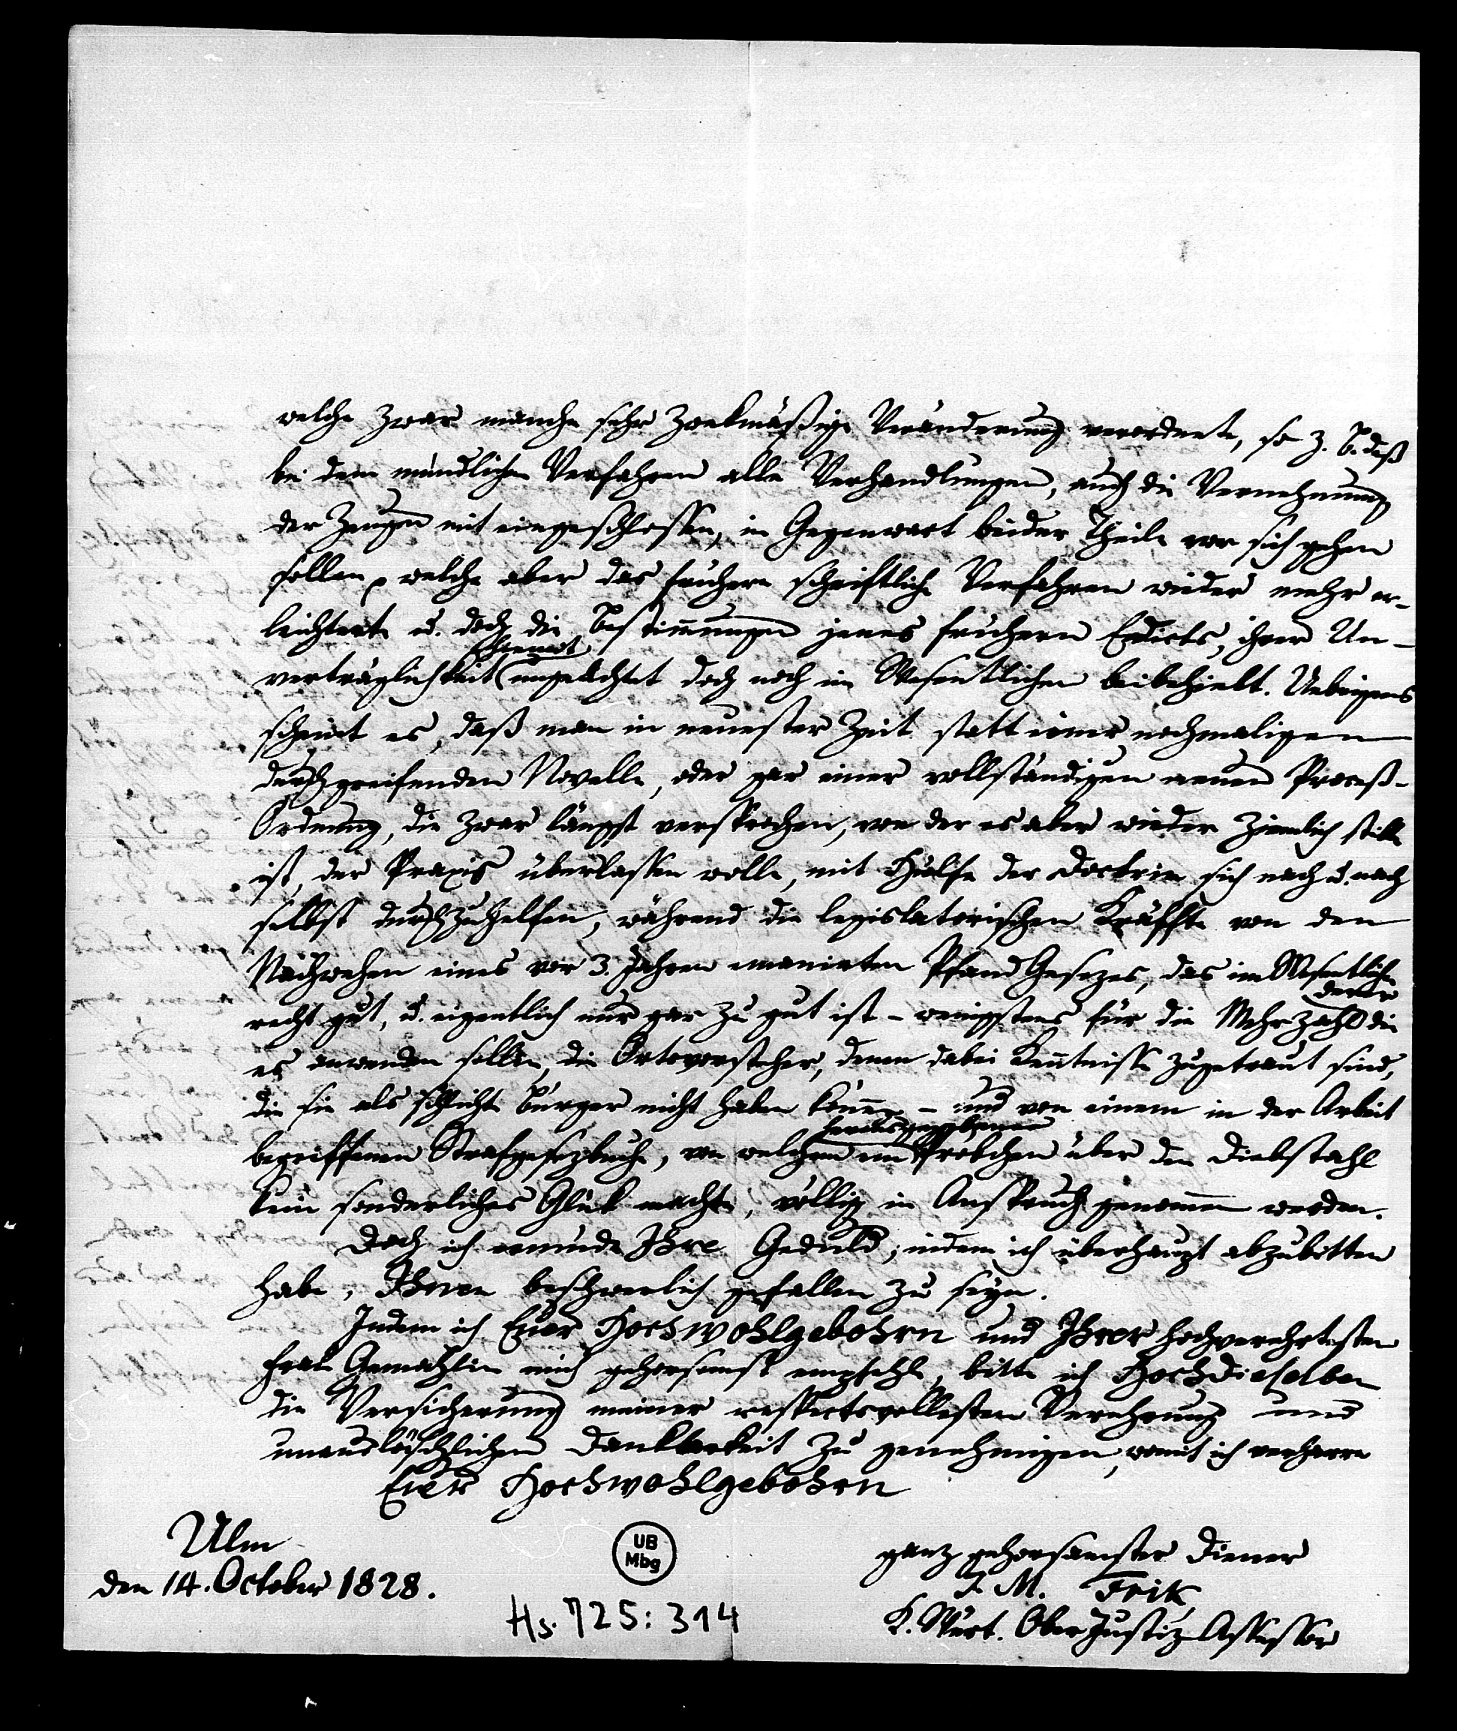 welche zwar manche sehr zwekmäßige Veränderung verordnete, so z. B. daß
bei dem mündlichen Verfahren alle Verhandlungen, auch die Vernehmung
der Zeugen mit eingeschlossen, in Gegenwart beider Theile vor sich gehen
sollen, welche aber das frühere schriftliche Verfahren wieder mehr er-
leichterte u. doch die Bestimmungen jenes frühern Edicts, ihrer Un-
verträglichkeit ungeachtet doch noch im Wesentlichen beibehielt. Uebrigens
scheint es, daß man in neuester Zeit statt einer nochmaligen
durchgreifenden Novelle, oder gar einer vollständigen neuen Proceß-
Ordnung, die zwar längst versprochen, von der es aber wieder ziemlich stille
ist, der Praxis überlassen wolle, mit Hülfe der Doctrin sich nach u. nach
selbst durchzuhelfen, während die legislatorischen Kräffte von den
Nachwehen eines vor 3. Jahren emanirten Pfand Gesezes, das im Wesentlichen
derer
recht gut, u. eigentlich nur gar zu gut ist – wenigstens für die Mehrzahl die
es anwenden sollen, die Ortsvorsteher, denen dabei Kenntnisse zugetraut sind,
die sie als schlichte Bürger nicht haben können – und von einem in der Arbeit
herausgegebenes
begriffenen Strafgesezbuche, von welchem ein Pröbchen über den Diebstahl
kein sonderliches Glük machte, völlig in Anspruch genommen werden.
Doch ich ermüde Ihre Geduld, indem ich überhaupt abzubitten
habe, Ihnen beschwerlich gefallen zu seyn.
Indem ich Euer Hochwohlgebohrn und Ihrer hochverehrtesten
Frau Gemahlin mich gehorsamst empfehle, bitte ich Hochdieselben
die Versicherung meiner respectvollesten Verehrung und
unauslöschlichen Dankbarkeit zu genehmigen, womit ich verharre
Euer Hochwohlgebohrn
Ulm
den 14. October 1828.
ganz gehorsamster Diener
J. M. Frik
K. Würt. OberJustiz-Assessor
UB
Mbg
Hs. 725: 314